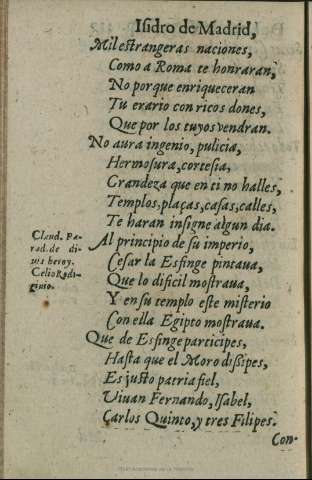 Isidro de Madrid,
Mil estrangeras naciones,
Como a Roma te honraran,
No porque enriqueceran
Tu erario con ricos dones,
Que por los tuyos vendran.
No aura ingenio, pulicia,
Hermosura, cortesia,
Grandeza que en ti no halles,
Templos, plaças, casas, calles,
Te haran insigne algun dia.
Claud. Pa-
rad. de di-
uis heroy.
Celio Rodi-
ginio.
Al principio de su imperio,
Cesar la Esfinge pintaua,
Que lo dificil mostraua,
Y en su templo este misterio
Con ella Egipto mostraua.
Que de Esfinge participes,
Hasta que el Moro dissipes,
Es justo patria fiel,
Uiuan Fernando, Isabel,
Carlos Quinto, y tres Filipes.
Con-